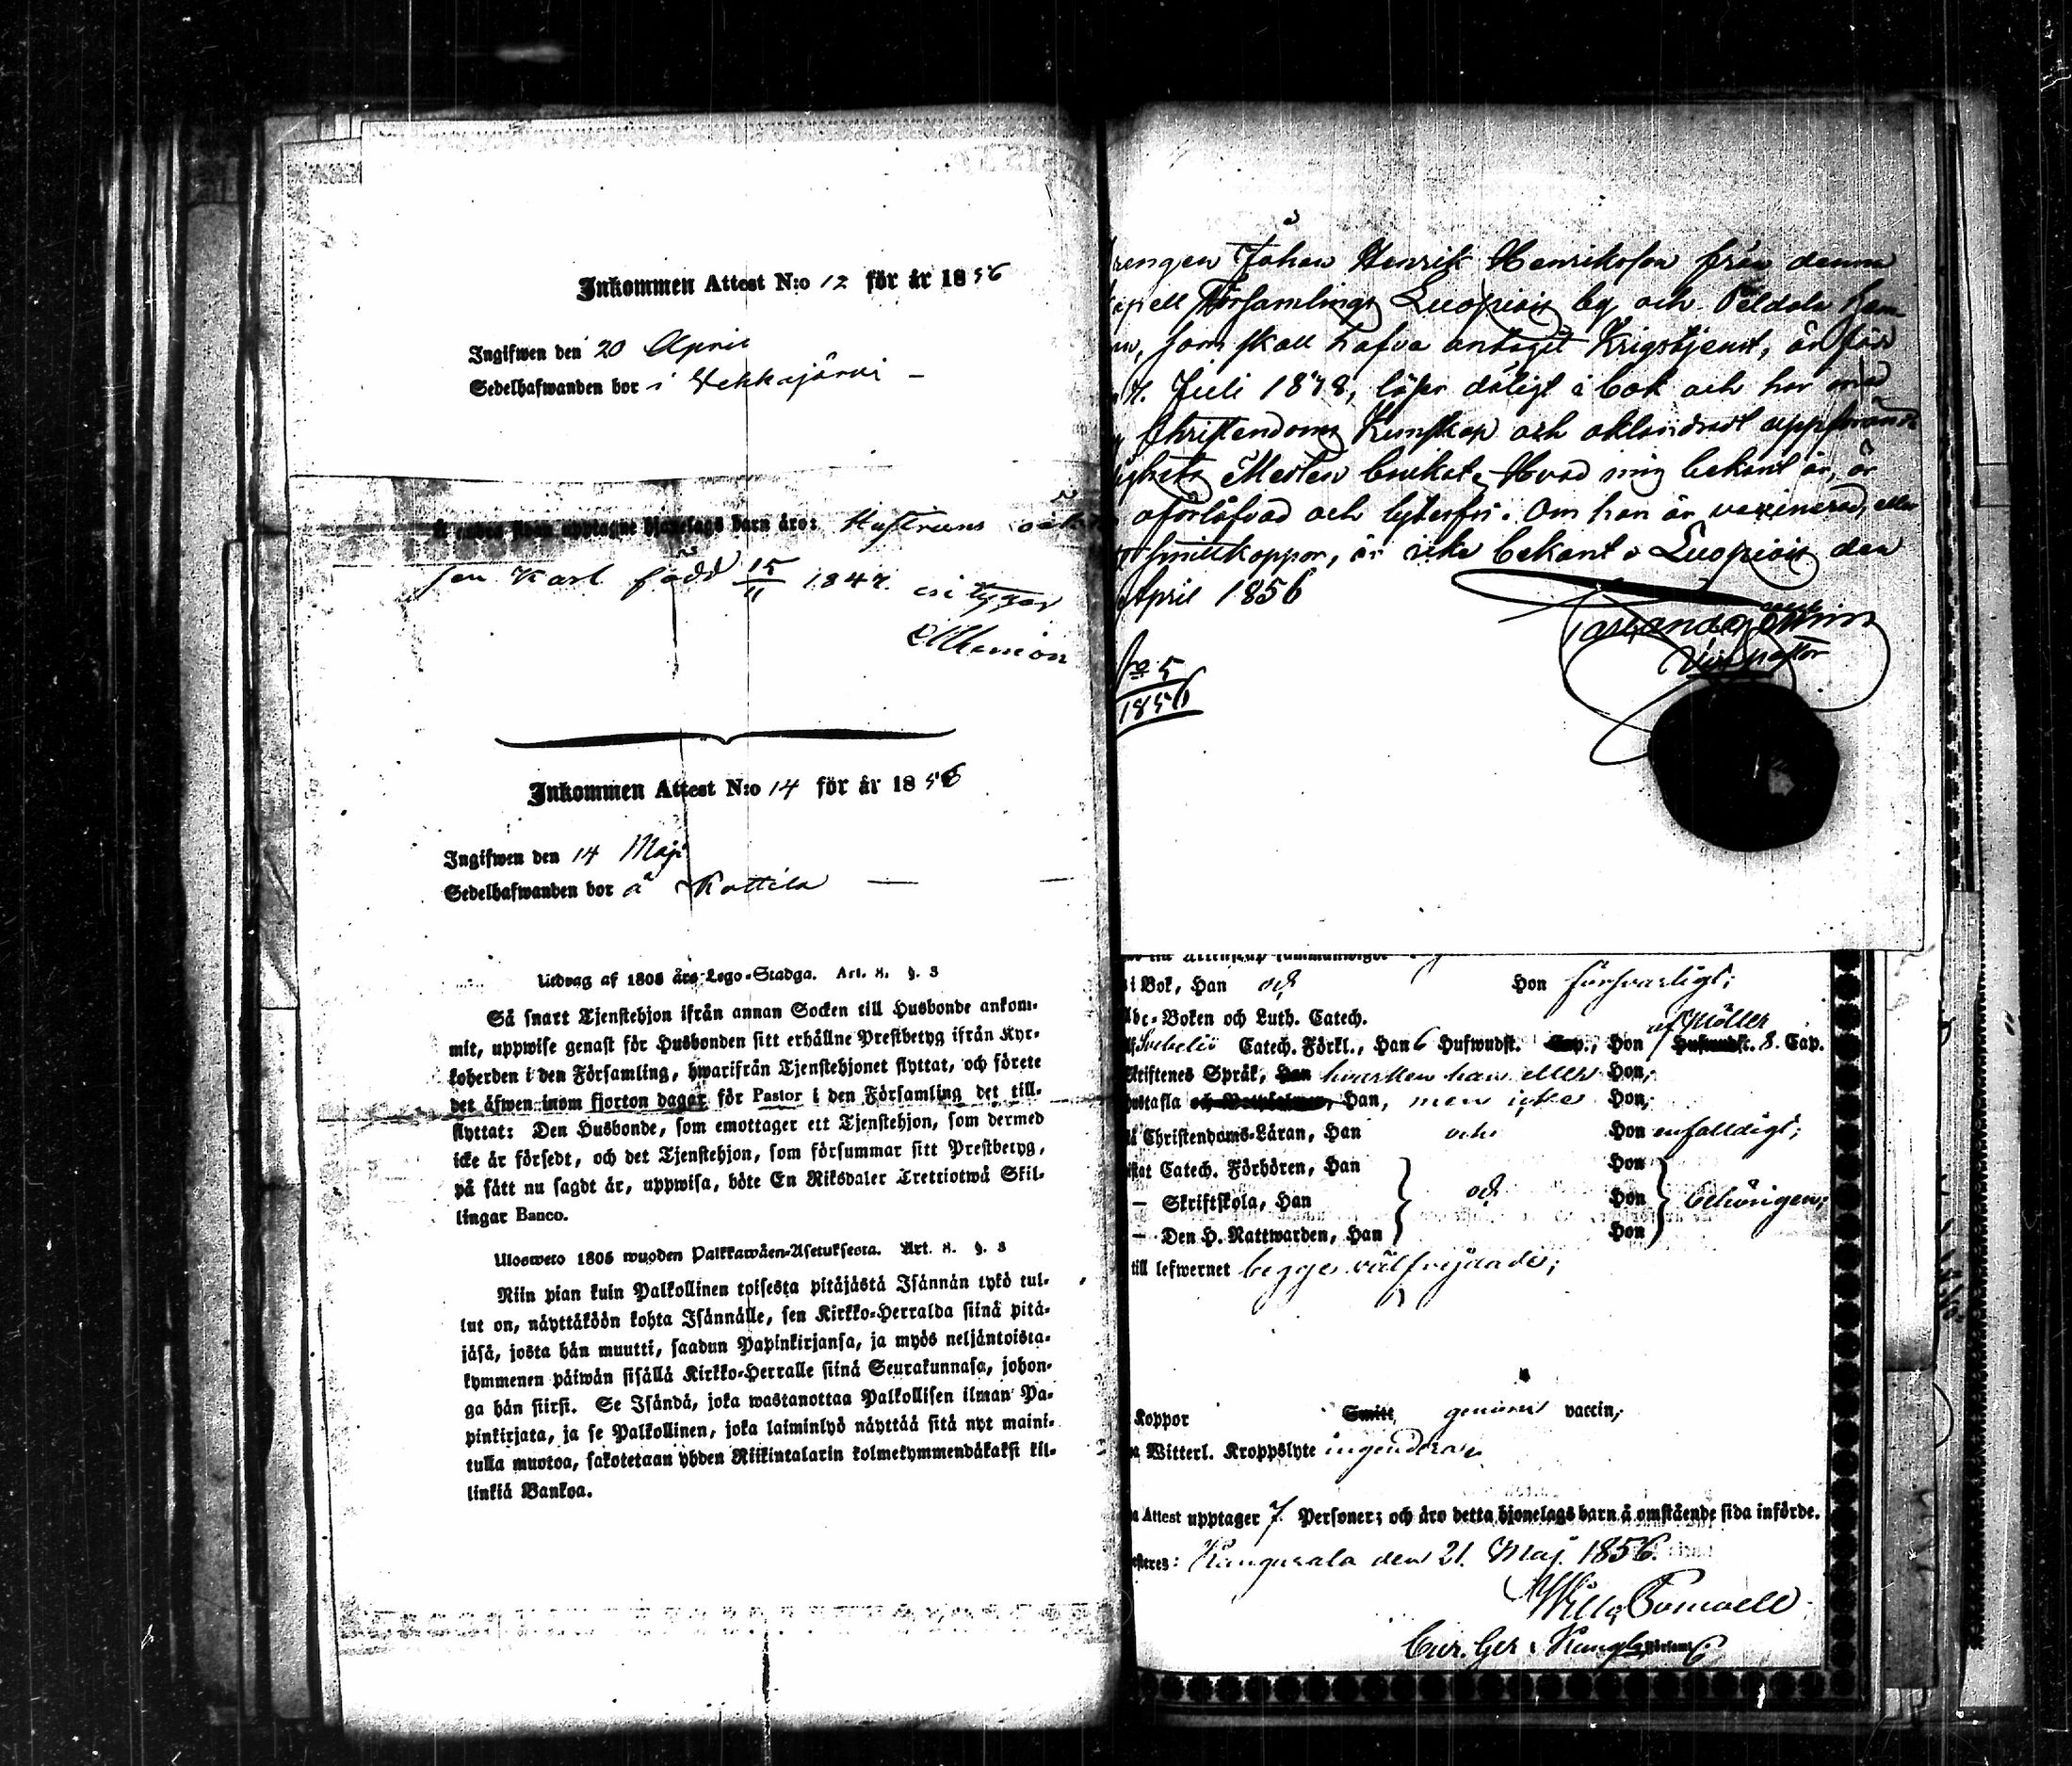 Inkommen Attest N:o 12 för år 1856
Ingifwen den 20 April
Sedelhafwanden bor i Vekkajärvi –
upptagne hjonelags barn äro: Hustruns
son Karl född 15/11 1847.
Inkommen Attest N:o 14 för år 1856
Ingifwen den 14 Maji
Sedelhafwanden bor å Kottila —
Utdrag af 1805 års Lego-Stadga. Art. 8. §. 3
Så snart Tjenstehjon ifrån annan Socken till Husbonde ankom-
mit, uppwise genast för Husbonden sitt erhållne Prestbetyg ifrån Kyr-
koherden i den Församling, hwarifrån Tjenstehjonet flyttat, och förete
det äfwen inom fjorton dagar för Pastor i den Församling det till-
flyttat: Den Husbonde, som emottager ett Tjenstehjon, som dermed
icke är försedt, och det Tjenstehjon, som försummar sitt Prestbetyg,
på sätt nu sagdt är, uppwisa, böte En Riksdaler Trettiotwå Skil-
lingar Banco.
Ulosweto 1805 wuoden Palkkawäen-Asetuksesta. Art. 8. §. 3
Niin pian kuin Palkollinen toisesta pitäjästä Isännän tykö tul-
lut on, näyttäköön kohta Isännälle, sen Kirkko-Herralda siinä pitä-
jäsä, josta hän muutti, saadun Papinkirjansa, ja myös neljäntoista-
kymmenen päiwän sisällä Kirkko-Herralle siinä Seurakunnasa, johon-
ga hän siirsi. Se Isändä, joka wastanottaa Palkollisen ilman Pa-
pinkirjata, ja se Palkollinen, joka laiminlyö näyttää sitä nyt maini-
tulla muotoa, sakotetaan yhden Riikintalarin kolmekymmendäkaksi kil-
linkiä Bankoa.
Johan Henrik Henriksson från denna
Församlings Luopiois by och Peldola
som skall hafva antagit Krigstjenst, är född
Juli 1838, läser dåligt i bok och har med
Christendoms Kunskap och oklandradt uppförande
Nattvarden bevistat. Hvad mig bekant är, är
oförlofvad och lytesfri. Om han är vaxinerad, eller
smittkoppor, är icke bekant. Luopiois den
April 1856
No 5
1856
i Bok, Han och Hon försvarligt;
Abc-Boken och Luth. Catech.
Svebelii Catech. Förkl., Han 6 Hufwudst. Cap., Hon af Möller Hufwudst. 8. Cap.
Skriftenes Språk, Han hvarken han eller Hon;
Hustafla Han, men icke Hon;
Christendoms-Läran, Han och Hon enfaldigt;
Catech. Förhören, Han Hon
– Skriftskola, Han och Hon behörigen;
– Den H. Nattwarden, Han Hon
till lefwernet begge välfrejdade;
Koppor Smitt genom vaccin;
Witterl. Kroppslyte ingendera.
Attest upptager 7. Personer; och äro detta hjonelags barn å omstående sida införde.
Kangasala den 21. Maj 1856.